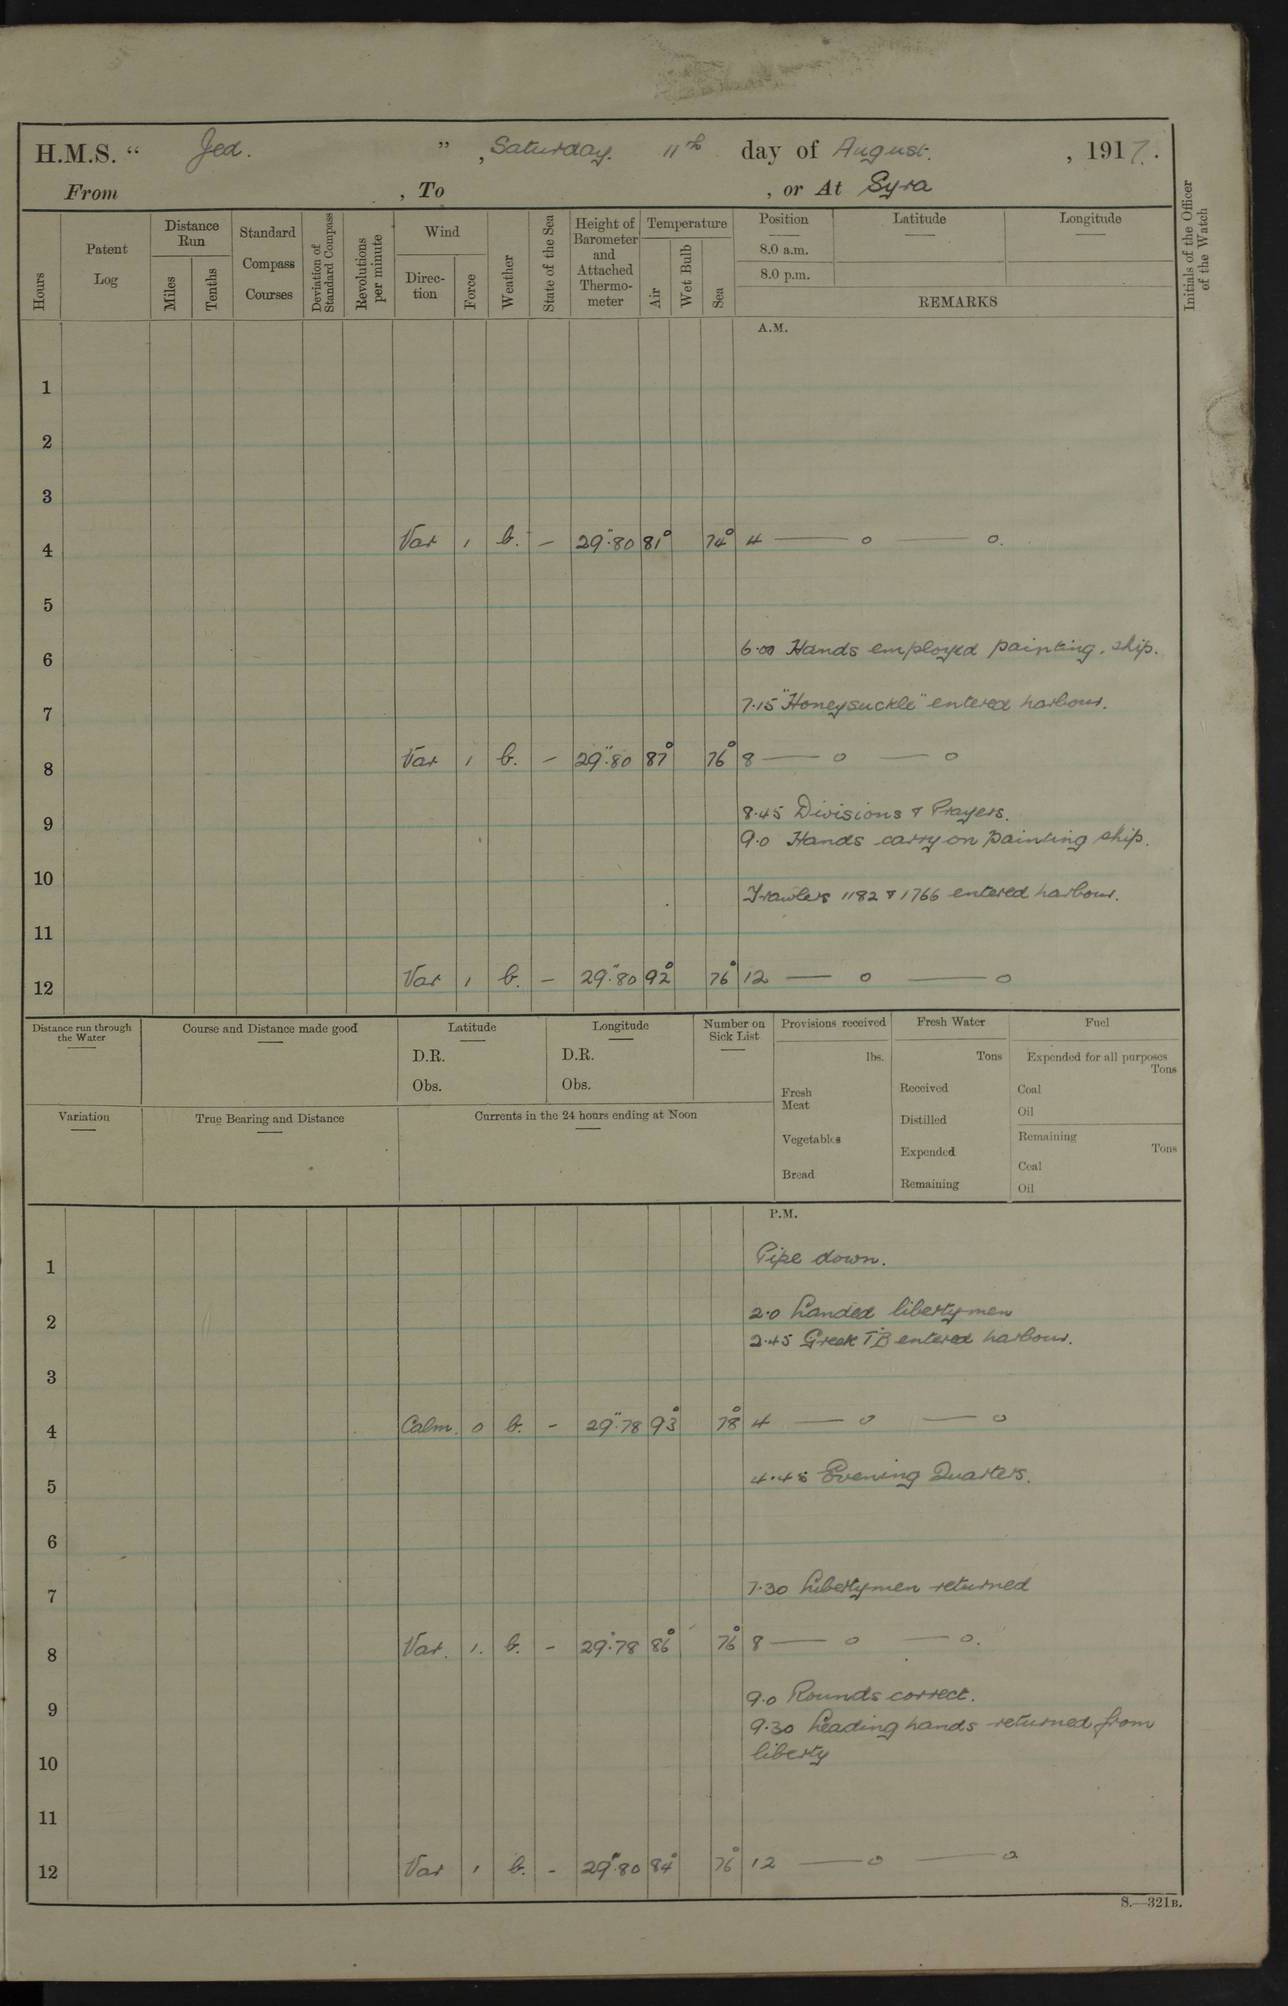 H.M.S. “ Jed. ” , Saturday. 11th day of August. , 1917.
From , To , or At Syra
Hours
Patent Log
Distance Run
Miles
Tenths
Standard Compass Courses
Deviation of Standard Compass
Revolutions per minute
Wind
Direc-tion
Force
Weather
State of the Sea
Height of Barometer and Attached Thermo-meter
Temperature
Air
Wet Bulb
Sea
Position
8.0 a.m.
8.0 p.m.
Latitude
Longitude
REMARKS
Initials of the Officer of the Watch
A.M.
1
2
3
4 Var 1 b. — 29".80 81° 74° 4 — o — o.
5
6 6.00 Hands employed painting ship.
7 7.15 "Honeysuckle" entered harbour.
8 Var 1 b. — 29".80 87° 76° 8 — o — o
9 8.45 Divisions & Prayers.
9.0 Hands carry on painting ship.
10
Trawlers 1182 & 1766 entered harbour.
11
12 Var 1 b. — 29".80 92° 76° 12 — o — o
Distance run through the Water
Course and Distance made good
Latitude
D.R.
Obs.
Longitude
D.R.
Obs.
Number on Sick List
Provisions received
lbs.
Fresh Meat
Vegetables
Bread
Fresh Water
Tons
Received
Distilled
Expended
Remaining
Fuel
Expended for all purposes
Tons
Coal
Oil
Remaining
Tons
Coal
Oil
Variation
True Bearing and Distance
Currents in the 24 hours ending at Noon
P.M.
1 Pipe down.
2 2.0 Landed libertymen
2.45 Greek T.B entered harbour.
3
4 Calm. 0 b. - 29".78 93° 78° 4 — o — o
5 4.45 Evening Quarters.
6
7 7.30 Libertymen returned
8 Var. 1. b. - 29".78 86° 76° 8 — o — o.
9 9.0 Rounds correct.
9.30 Leading hands returned from
liberty
10
11
12 Var 1 b. - 29".80 84° 76° 12 — o — o
S.—321B.